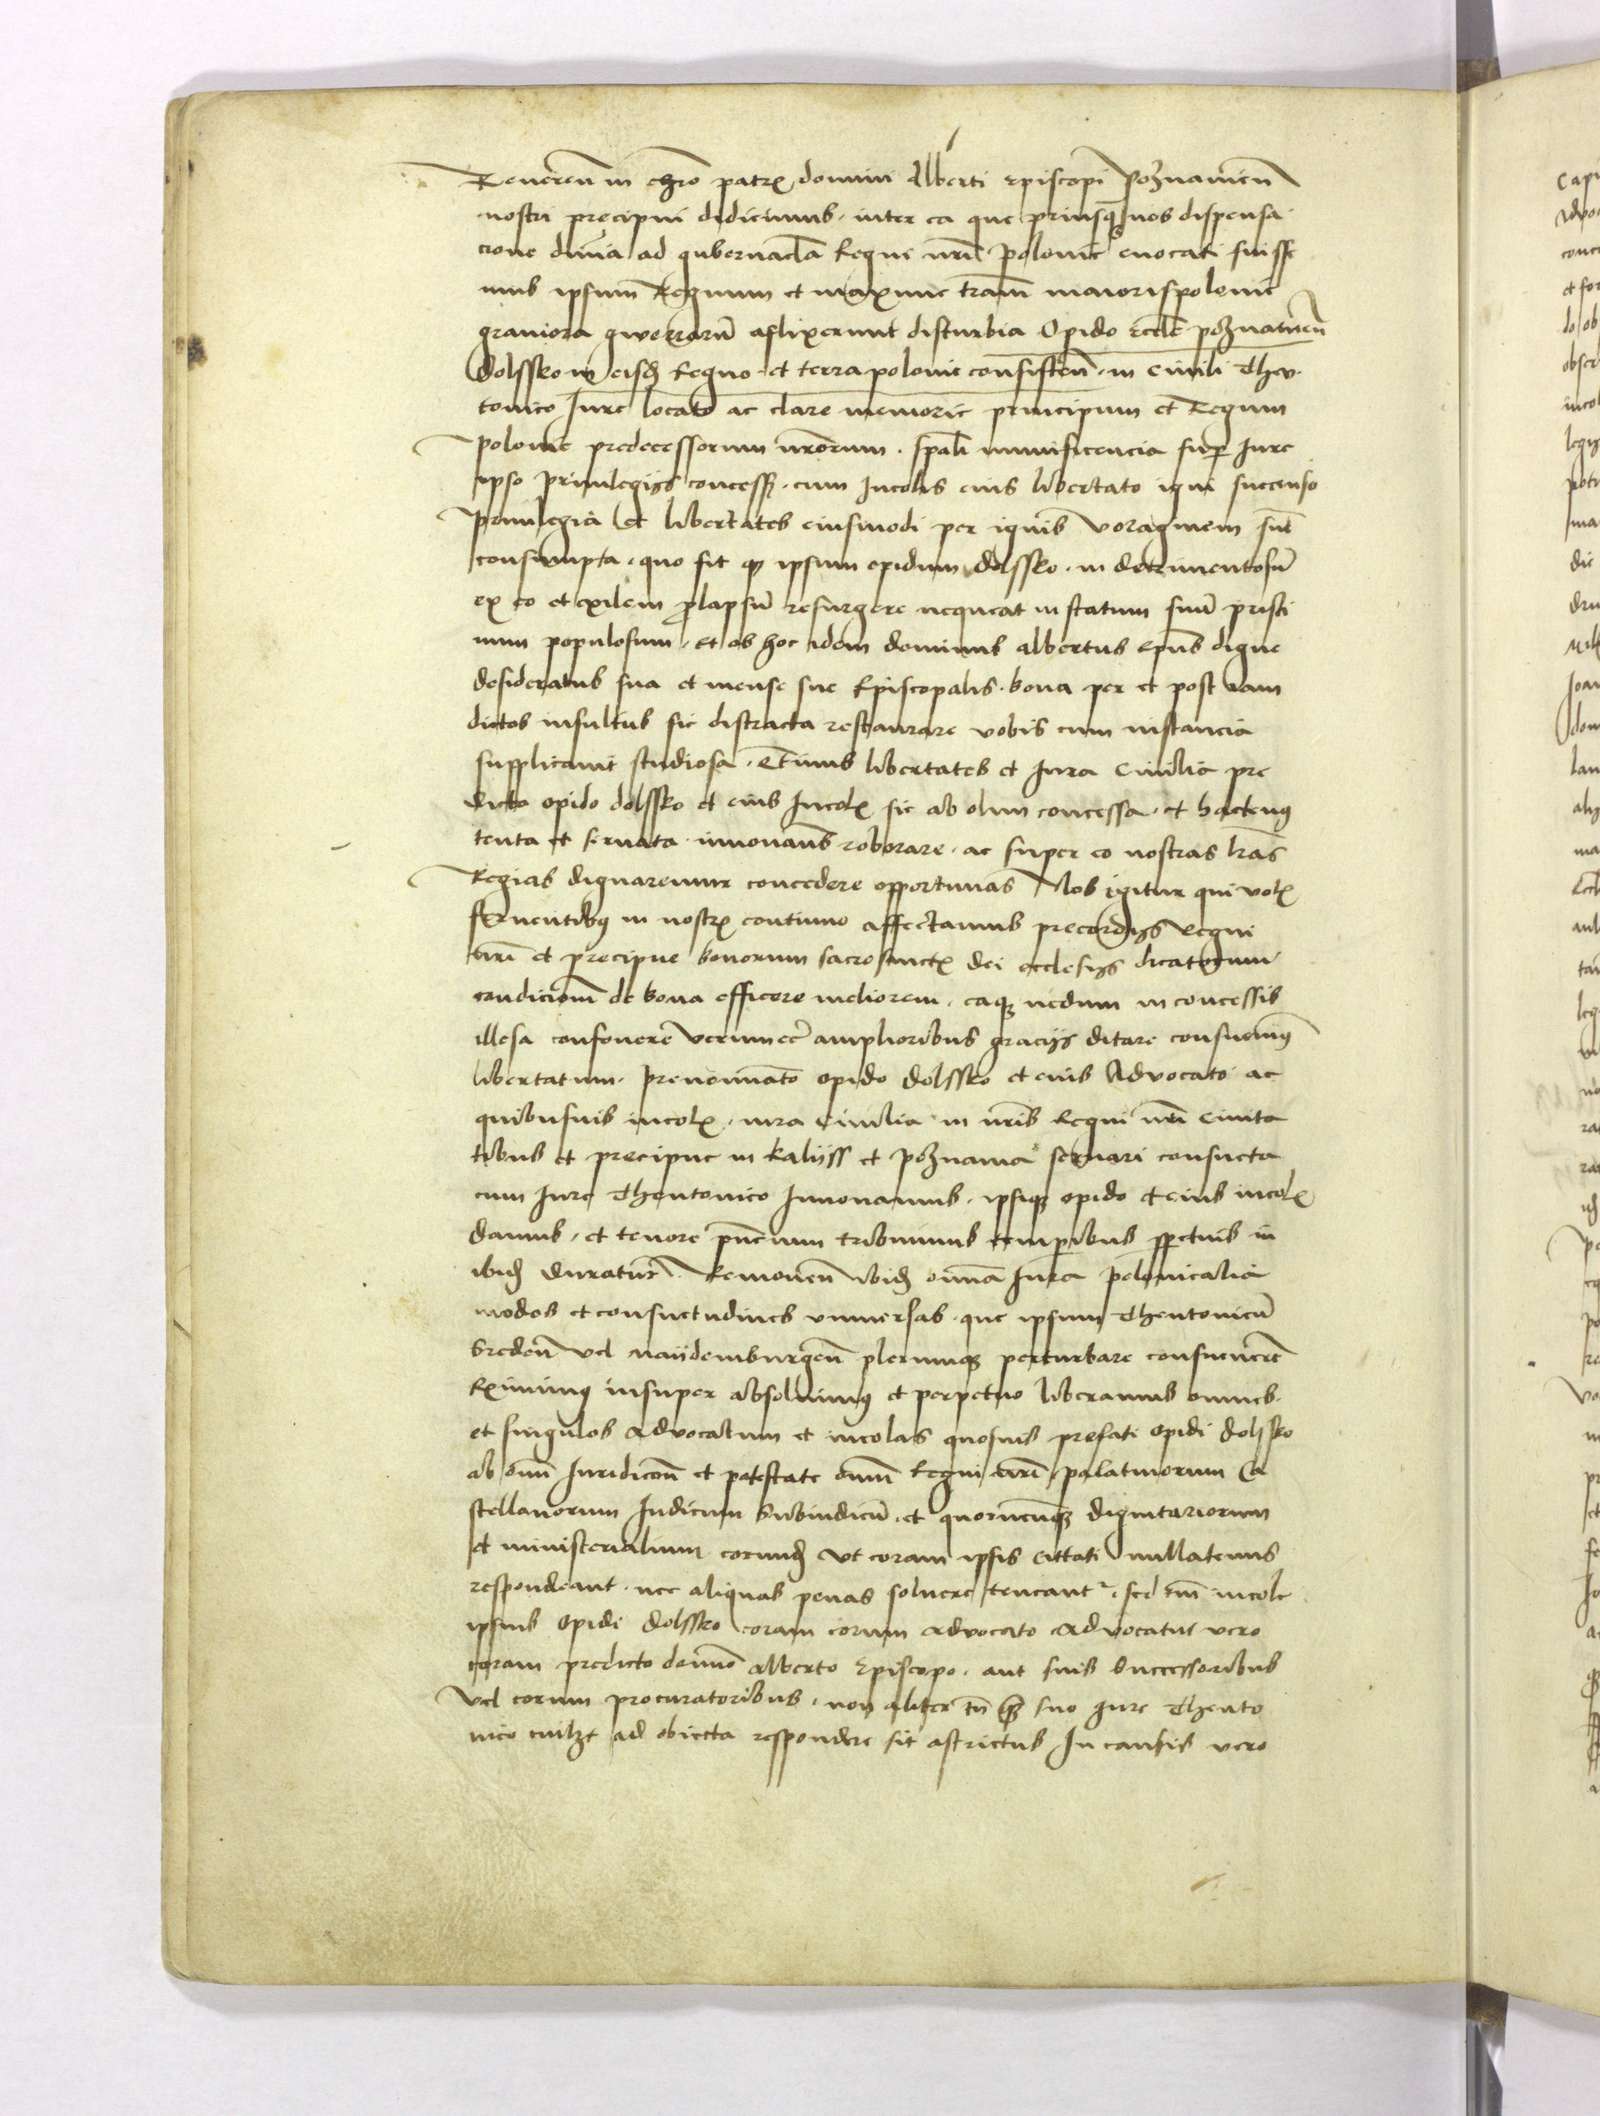 Reueren in chro patris domini Alberti Episcopi Poznanien
nostri precipui didicimus · inter ea que priusqz nos dispensa
cione diuina ad gubernacla Regni nri Polonie euocati fuisse
mus ipsum Regnum et maxime terram maiorispolonie
grauiora gwerrarum aflixerunt disturbia Opido eccle poznanien
Dolssko in eisdem Regno et terra polonie consisten · in ciuili Theu
tonico Iure locato ac clare memorie principum et Regum
Polonie predecessorum nrorum · spali munificencia super Iure
ipso priuilegijs concess · cum Incolis eius libertato igni succenso
priuilegia et libertates eiusmodi per ignis voraginem sunt
consumpta · quo fit qz ipsum opidum dolssko · in detrimentosum
ex eo et exilem prolapsum resurgere nequeat in statum suum pristi
num populosum · et ob hoc idem dominus albertus epus digne
desideratus sua et mense sue Episcopalis · bona per et post iam
dictos insultus sic distracta restaurare vobis cum instancia
supplicauit studiosa · Etinus libertates et Iura Ciuilia pre
dicto opido dolssko et eius Incolis sic ab olim concessa · et hactenus
tenta et seruata · innouans roborare · ac super eo nostras lras
Regias dignaremur concedere opportunas Nos igitur qui votis
feruentibus in nostris continuo affectamus precordijs Regni
nri et precipue bonorum sacrosancte dei ecclesijs dicatorum
condicionem de bona efficere meliorem · eaqz nedum in concessis
illesa confouere verumeciam amplioribus gracijs ditare consueuimus
libertatum · prenominato opido dolssko et eius Aduocato ac
quibusuis incolis · iura Ciuilia in nris Regni nri Ciuita
tibus et precipue in kalijss et poznania seruari consueta
cum Iure Theutonico Innouamus · ipsiqz opido et eius incolis
damus · et tenore pncium tribuimus temporibus perpetuis in
ibidem duratur Remouen ibidem omnia Iura polonicalia
modos et consuetudines vniuersas · que ipsum Theutonicum
Sreden vel maijdemburgen plerumqz perturbare consueuerunt
Eximimus insuper absoluimus et perpetuo liberamus omnes
et singulos aduocatum et incolas quosuis prefati opidi dolssko
ab omni Iuridicon et potestate omni Regni nri · palatinorum Ca
stellanorum Iudicum Subiudicum · et quorumcunqz dignitariorum
et ministerialium eorundem vt coram ipsis cittati nullatenus
respondeant · nec aliquas penas soluere teneant · sed tm incole
ipsius opidi dolssko coram eorum aduocato aduocatus vero
coram predicto domino alberto Episcopo · aut suis Successoribus
vel eorum procuratoribus · non aliter tn qz suo Iure Theuto
nico ad obiecta respondere sit astrictus In causis vero